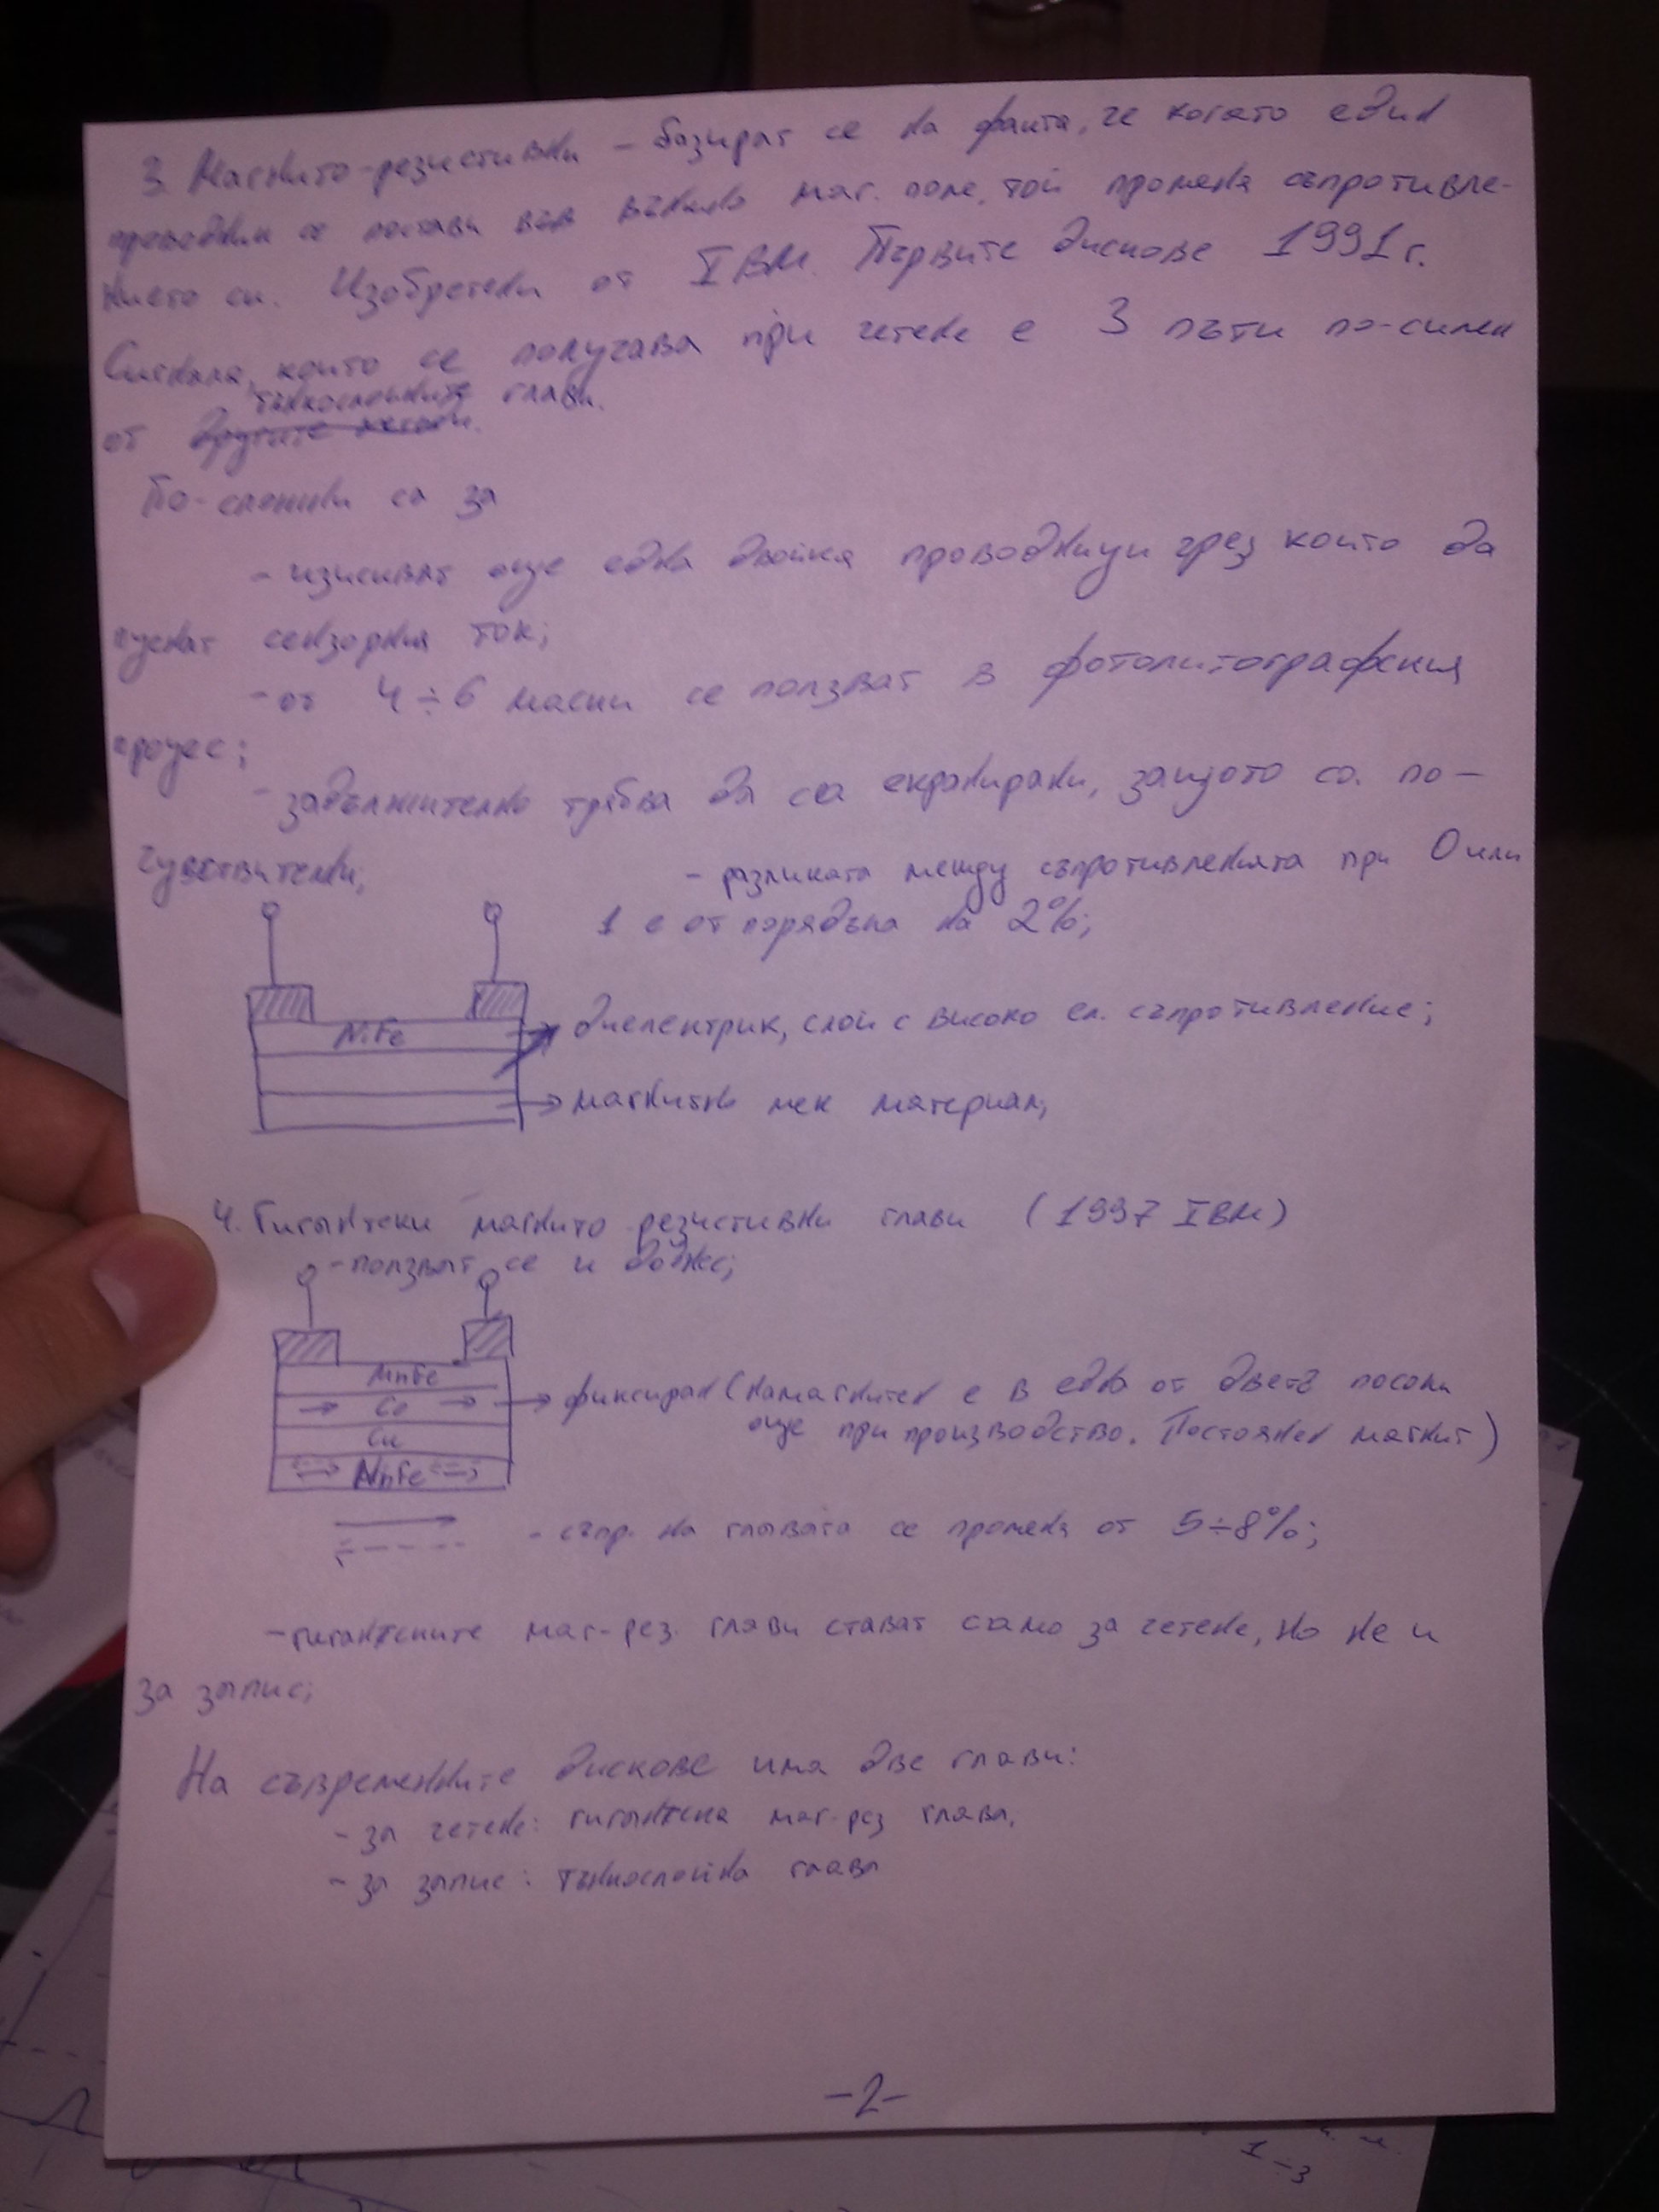 3. Магнито-резистивни – базират се на факта, че когато един
проводник се постави във външно маг. поле, той променя съпротивле-
нието си. Изобретени от IBM. Първите дискове 1991 г.
Сигнала, който се получава при четене е 3 пъти по-силен
тънкослойните глави.
от другите методи.
По-сложни са за
- изискват още една двойка проводници през които да
пускат сензорния ток;
- от 4÷6 маски се ползват в фотолитографския
процес;
- задължително трябва да са екранирани, защото са по-
чувствителни;
- разликата между съпротивленията при 0 или
1 е от порядъка на 2%;
NiFe
диелектрик, слой с високо ел. съпротивление;
магнитно мек материал;
4. Гигантски магнито резистивни глави (1997 IBM)
- ползват се и до днес;
MnFe
Co
фиксиран (намагнитен е в една от двете посоки
още при производство. Постоянен магнит)
Cu
- съпр. на главата се променя от 5÷8%;
- гигантските маг-рез. глави стават само за четене, но не и
за запис;
На съвременните дискове има две глави:
- за четене: гигантска маг-рез глава.
- за запис: тънкослойна глава
-2-